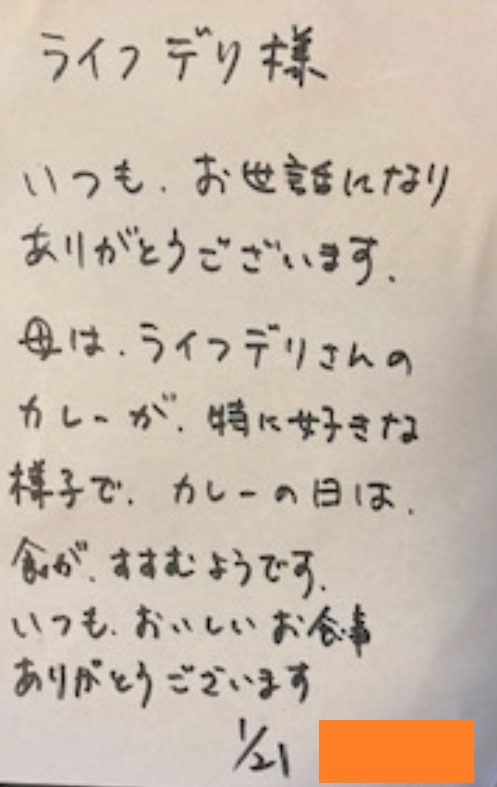 ライフデリ様
いつも、お世話になり
ありがとうございます。
母は、ライフデリさんの
カレーが、特に好きな
様子で、カレーの日は、
食が、すすむようです。
いつも、おいしいお食事
ありがとうございます
1/21